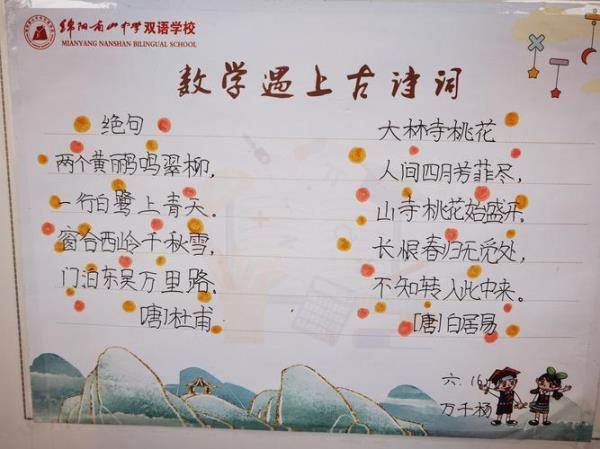 绵阳南山中学双语学校
MIANYANG NANSHAN BILINGUAL SCHOOL
数学遇上古诗词
绝句
两个黄鹂鸣翠柳,
一行白鹭上青天。
窗含西岭千秋雪,
门泊东吴万里路。
[唐]杜甫
大林寺桃花
人间四月芳菲尽,
山寺桃花始盛开。
长恨春归无觅处,
不知转入此中来。
[唐]白居易
六.16
万千杨